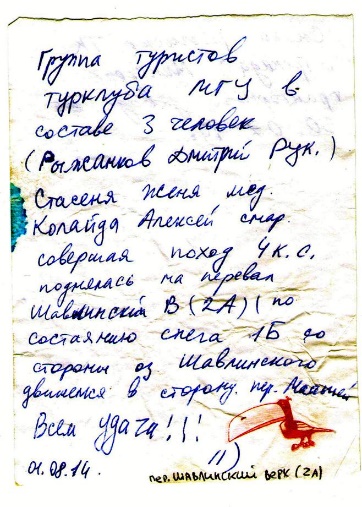 Группа туристов
турклуба МГУ в
составе 3 человек
(Рыжанков Дмитрий Рук.)
Стасеня Женя мед.
Колайда Алексей снар.
совершая поход 4 к.с.
поднялась на перевал
Шавлинский В (2А) ( по
состоянию снега 1Б со
стороны оз. Шавлинского
движемся в сторону. пер.
Всем удачи!!!
01.08.14.
пер. Шавлинский верх (2А)